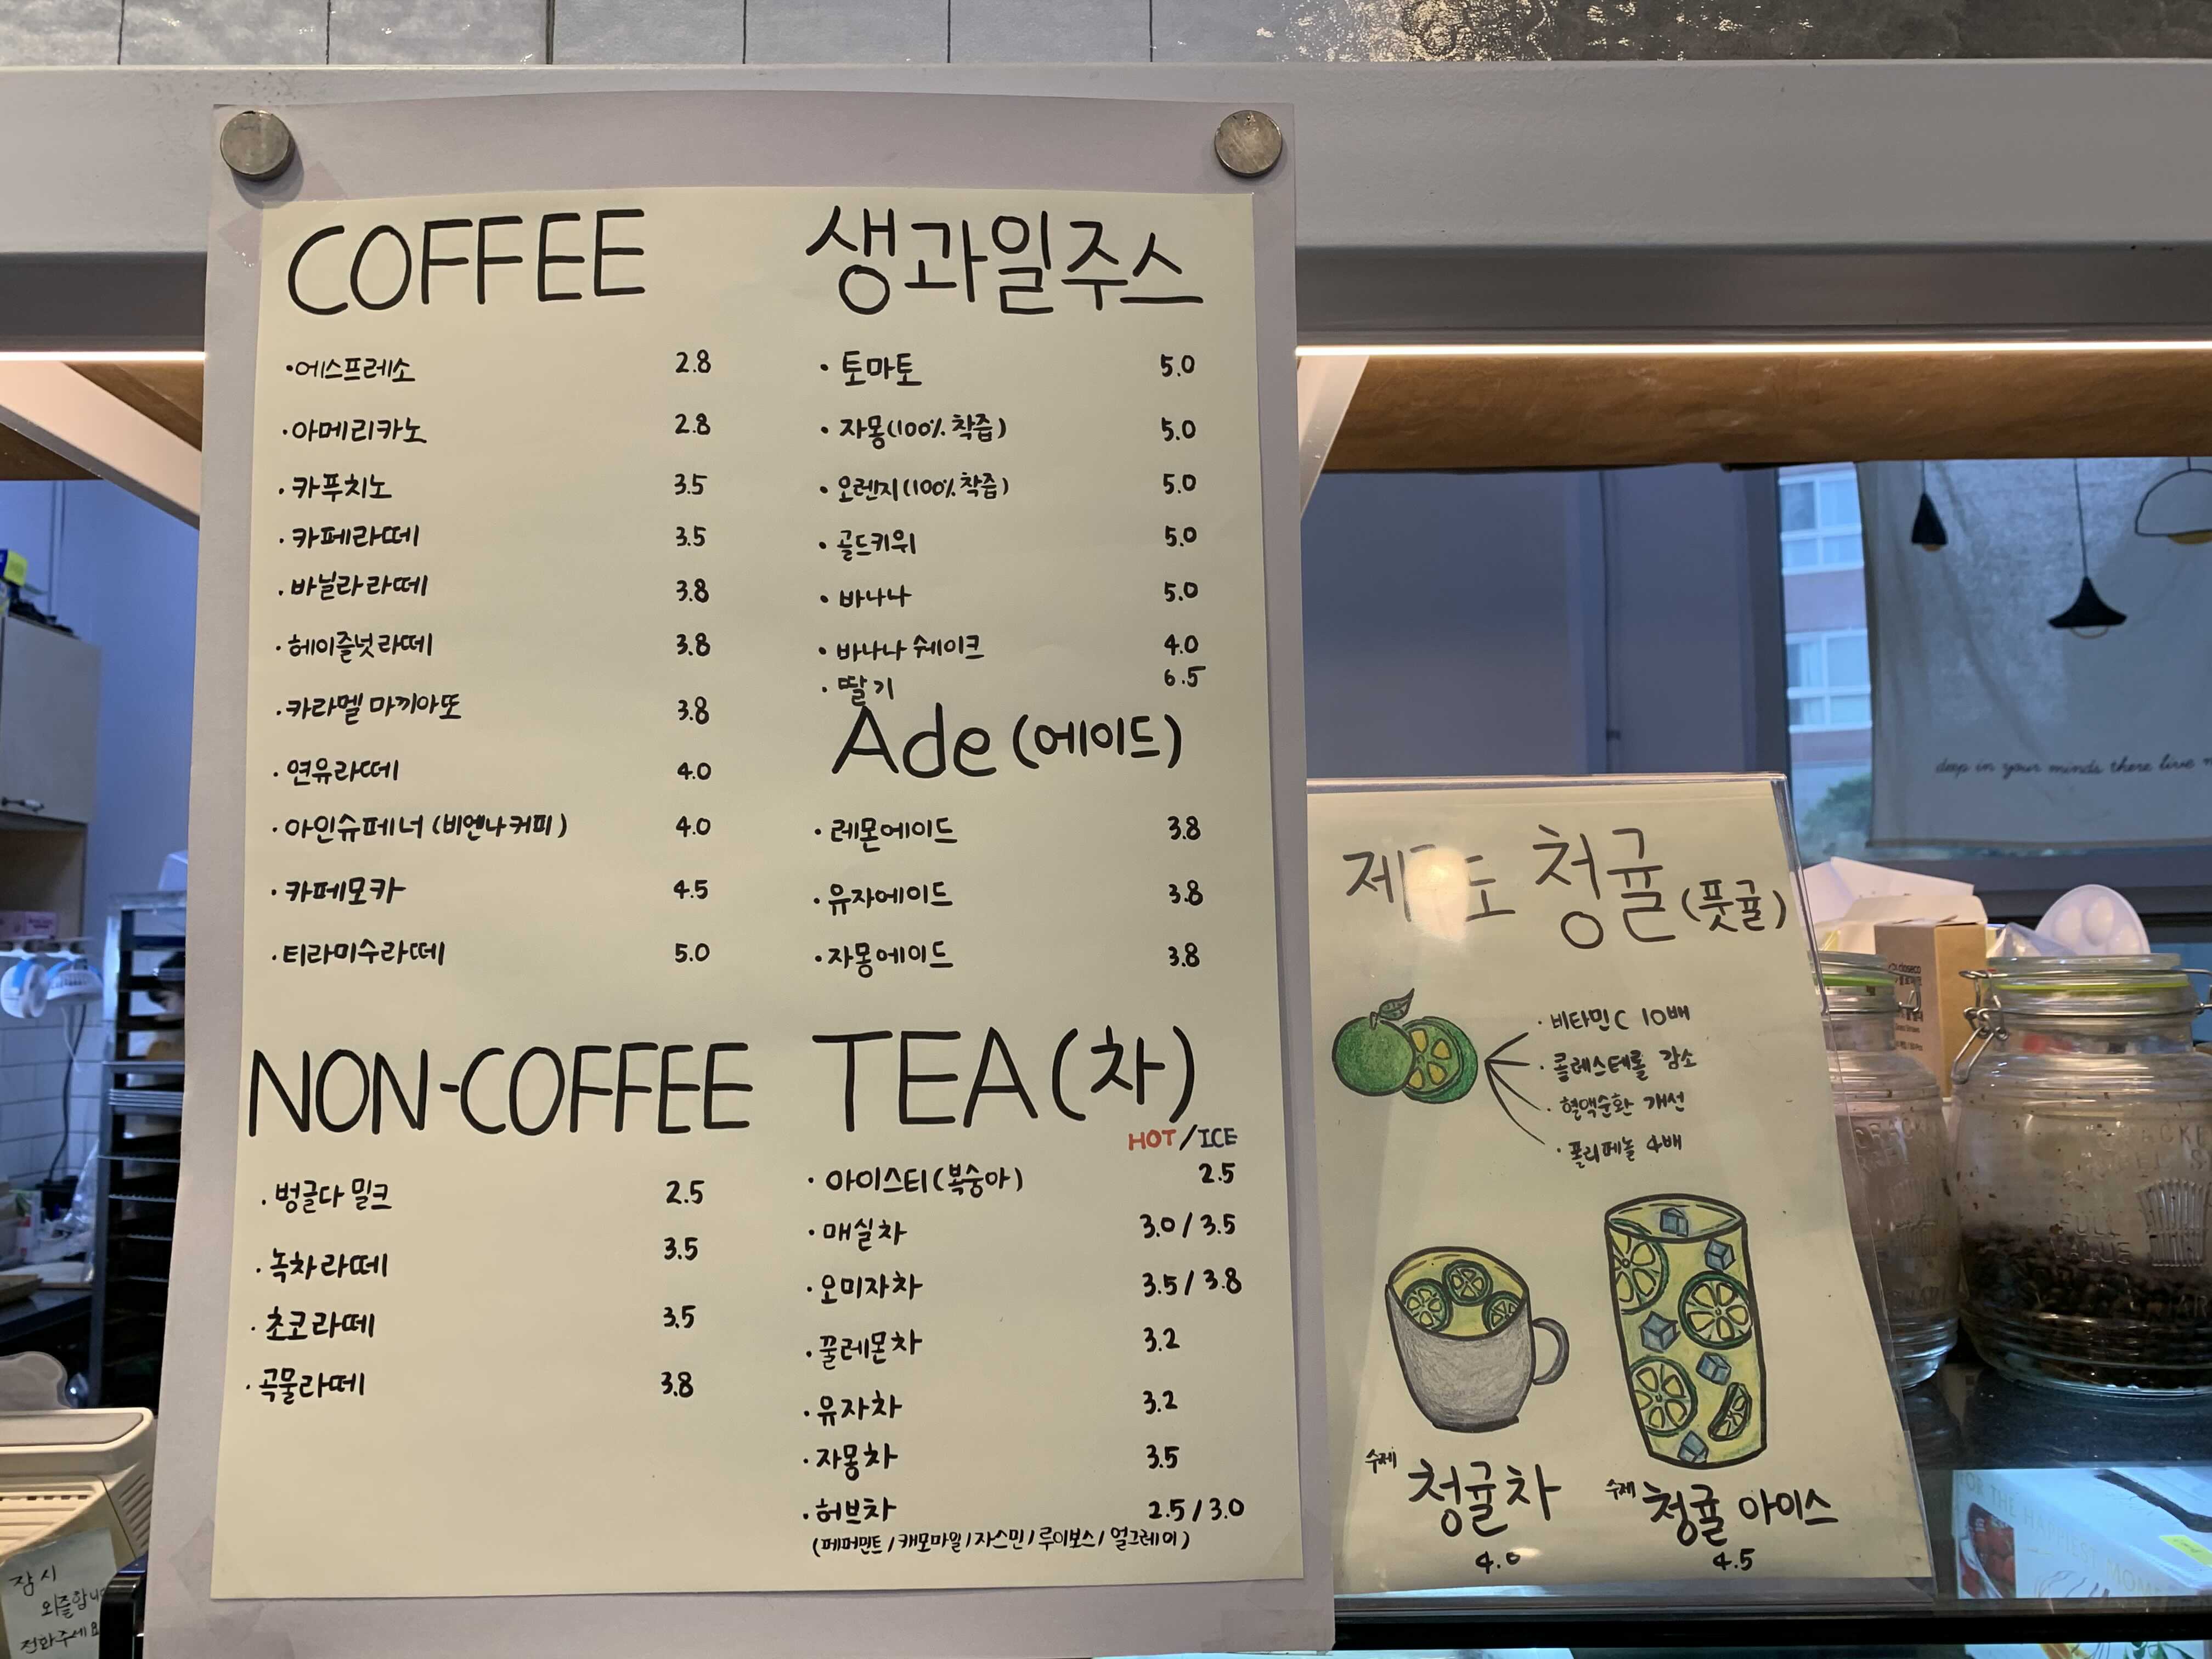 COFFEE
·에스프레소 2.8
·아메리카노 2.8
·카푸치노 3.5
·카페라떼 3.5
·바닐라라떼 3.8
·헤이즐넛라떼 3.8
·카라멜 마끼아또 3.8
·연유라떼 4.0
·아인슈페너 (비엔나커피) 4.0
·카페모카 4.5
·티라미수라떼 5.0
NON-COFFEE
·벙글다 밀크 2.5
·녹차라떼 3.5
·초코라떼 3.5
·곡물라떼 3.8
생과일주스
·토마토 5.0
·자몽(100% 착즙) 5.0
·오렌지(100% 착즙) 5.0
·골드키위 5.0
·바나나 5.0
·바나나 쉐이크 4.0
·딸기 6.5
Ade (에이드)
·레몬에이드 3.8
·유자에이드 3.8
·자몽에이드 3.8
TEA (차)
HOT/ICE
·아이스티(복숭아) 2.5
·매실차 3.0/3.5
·오미자차 3.5/3.8
·꿀레몬차 3.2
·유자차 3.2
·자몽차 3.5
·허브차 2.5/3.0
(페퍼민트/캐모마일/자스민/루이보스/얼그레이)
청귤(풋귤)
·비타민C 10배
·콜레스테롤 감소
·혈액순환 개선
·폴리페놀 4배
수제 청귤차
4.0
수제 청귤 아이스
4.5
deep in your minds there live
잠시
외출합니
전화주세요